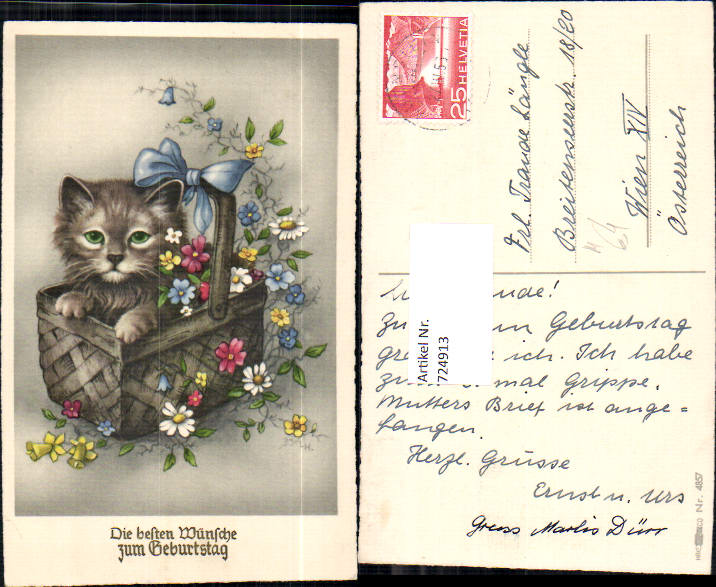 Die besten Wünsche
zum Geburtstag
25 HELVETIA
Frl. Traude Längle
Breitenseerstr. 18/20
Wien XIV
Österreich
Artikel Nr.
724913
Geburtstag
ich. Ich habe
mal Grippe.
Mutters Brief ist ange=
langen.
Herzl. Grüsse
Ernst u. Urs
Gruss Marlis Dürr
Nr. 4857